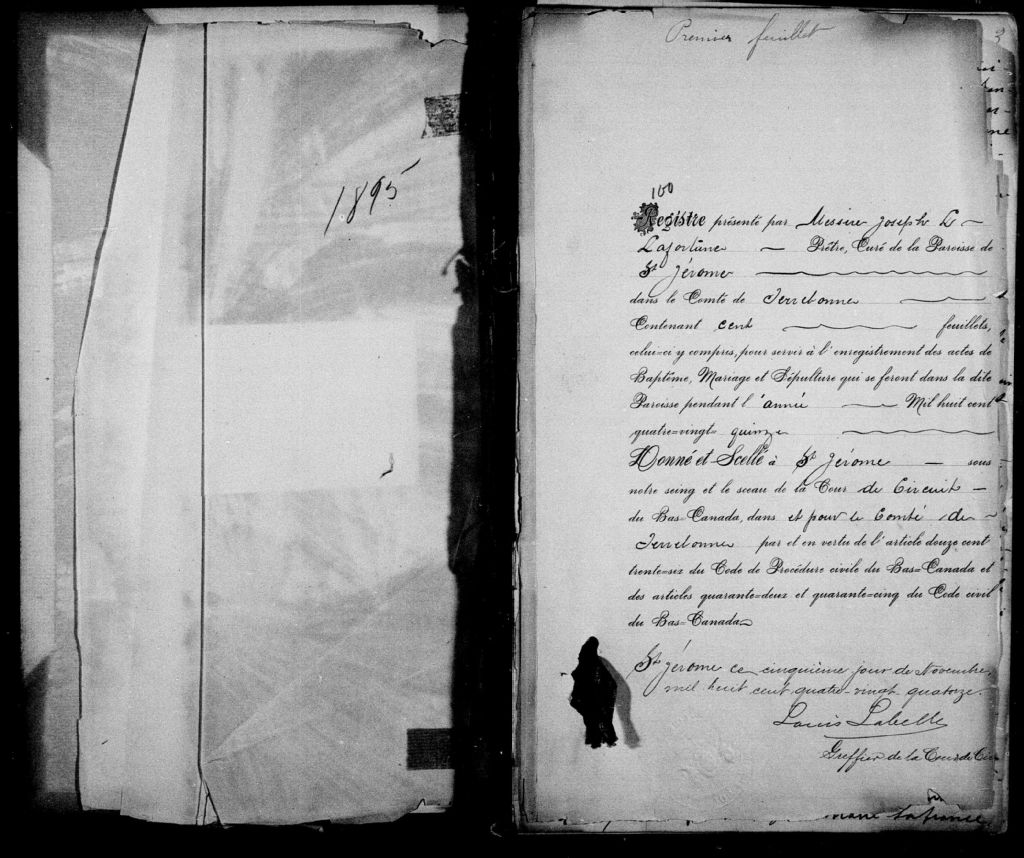 1895
Premier feuillet
3
100
Registre présenté par Messire Joseph L
Lafortune Prêtre, Curé de la Paroisse de
St Jérome
dans le Comté de Terrebonne
Contenant cent feuillets,
celui=ci y compris, pour servir à l'enregistrement des actes de
Baptême, Mariage et Sépulture qui se feront dans la dite
Paroisse pendant l'année Mil huit cent
quatre=vingt= quinze
Donné et Scellé à St Jérome sous
notre seing et le sceau de la Cour de Circuit
du Bas=Canada, dans et pour le Comté de
Terrebonne par et en vertu de l'article douze cent
trente=six du Code de Procédure civile du Bas=Canada et
des articles quarante=deux et quarante=cinq du Code civil
du Bas=Canada
St Jérome ce cinquième jour de Novembre,
mil huit cent quatre-vingt quatorze.
Louis Labelle
Greffier de la Cour de Cir